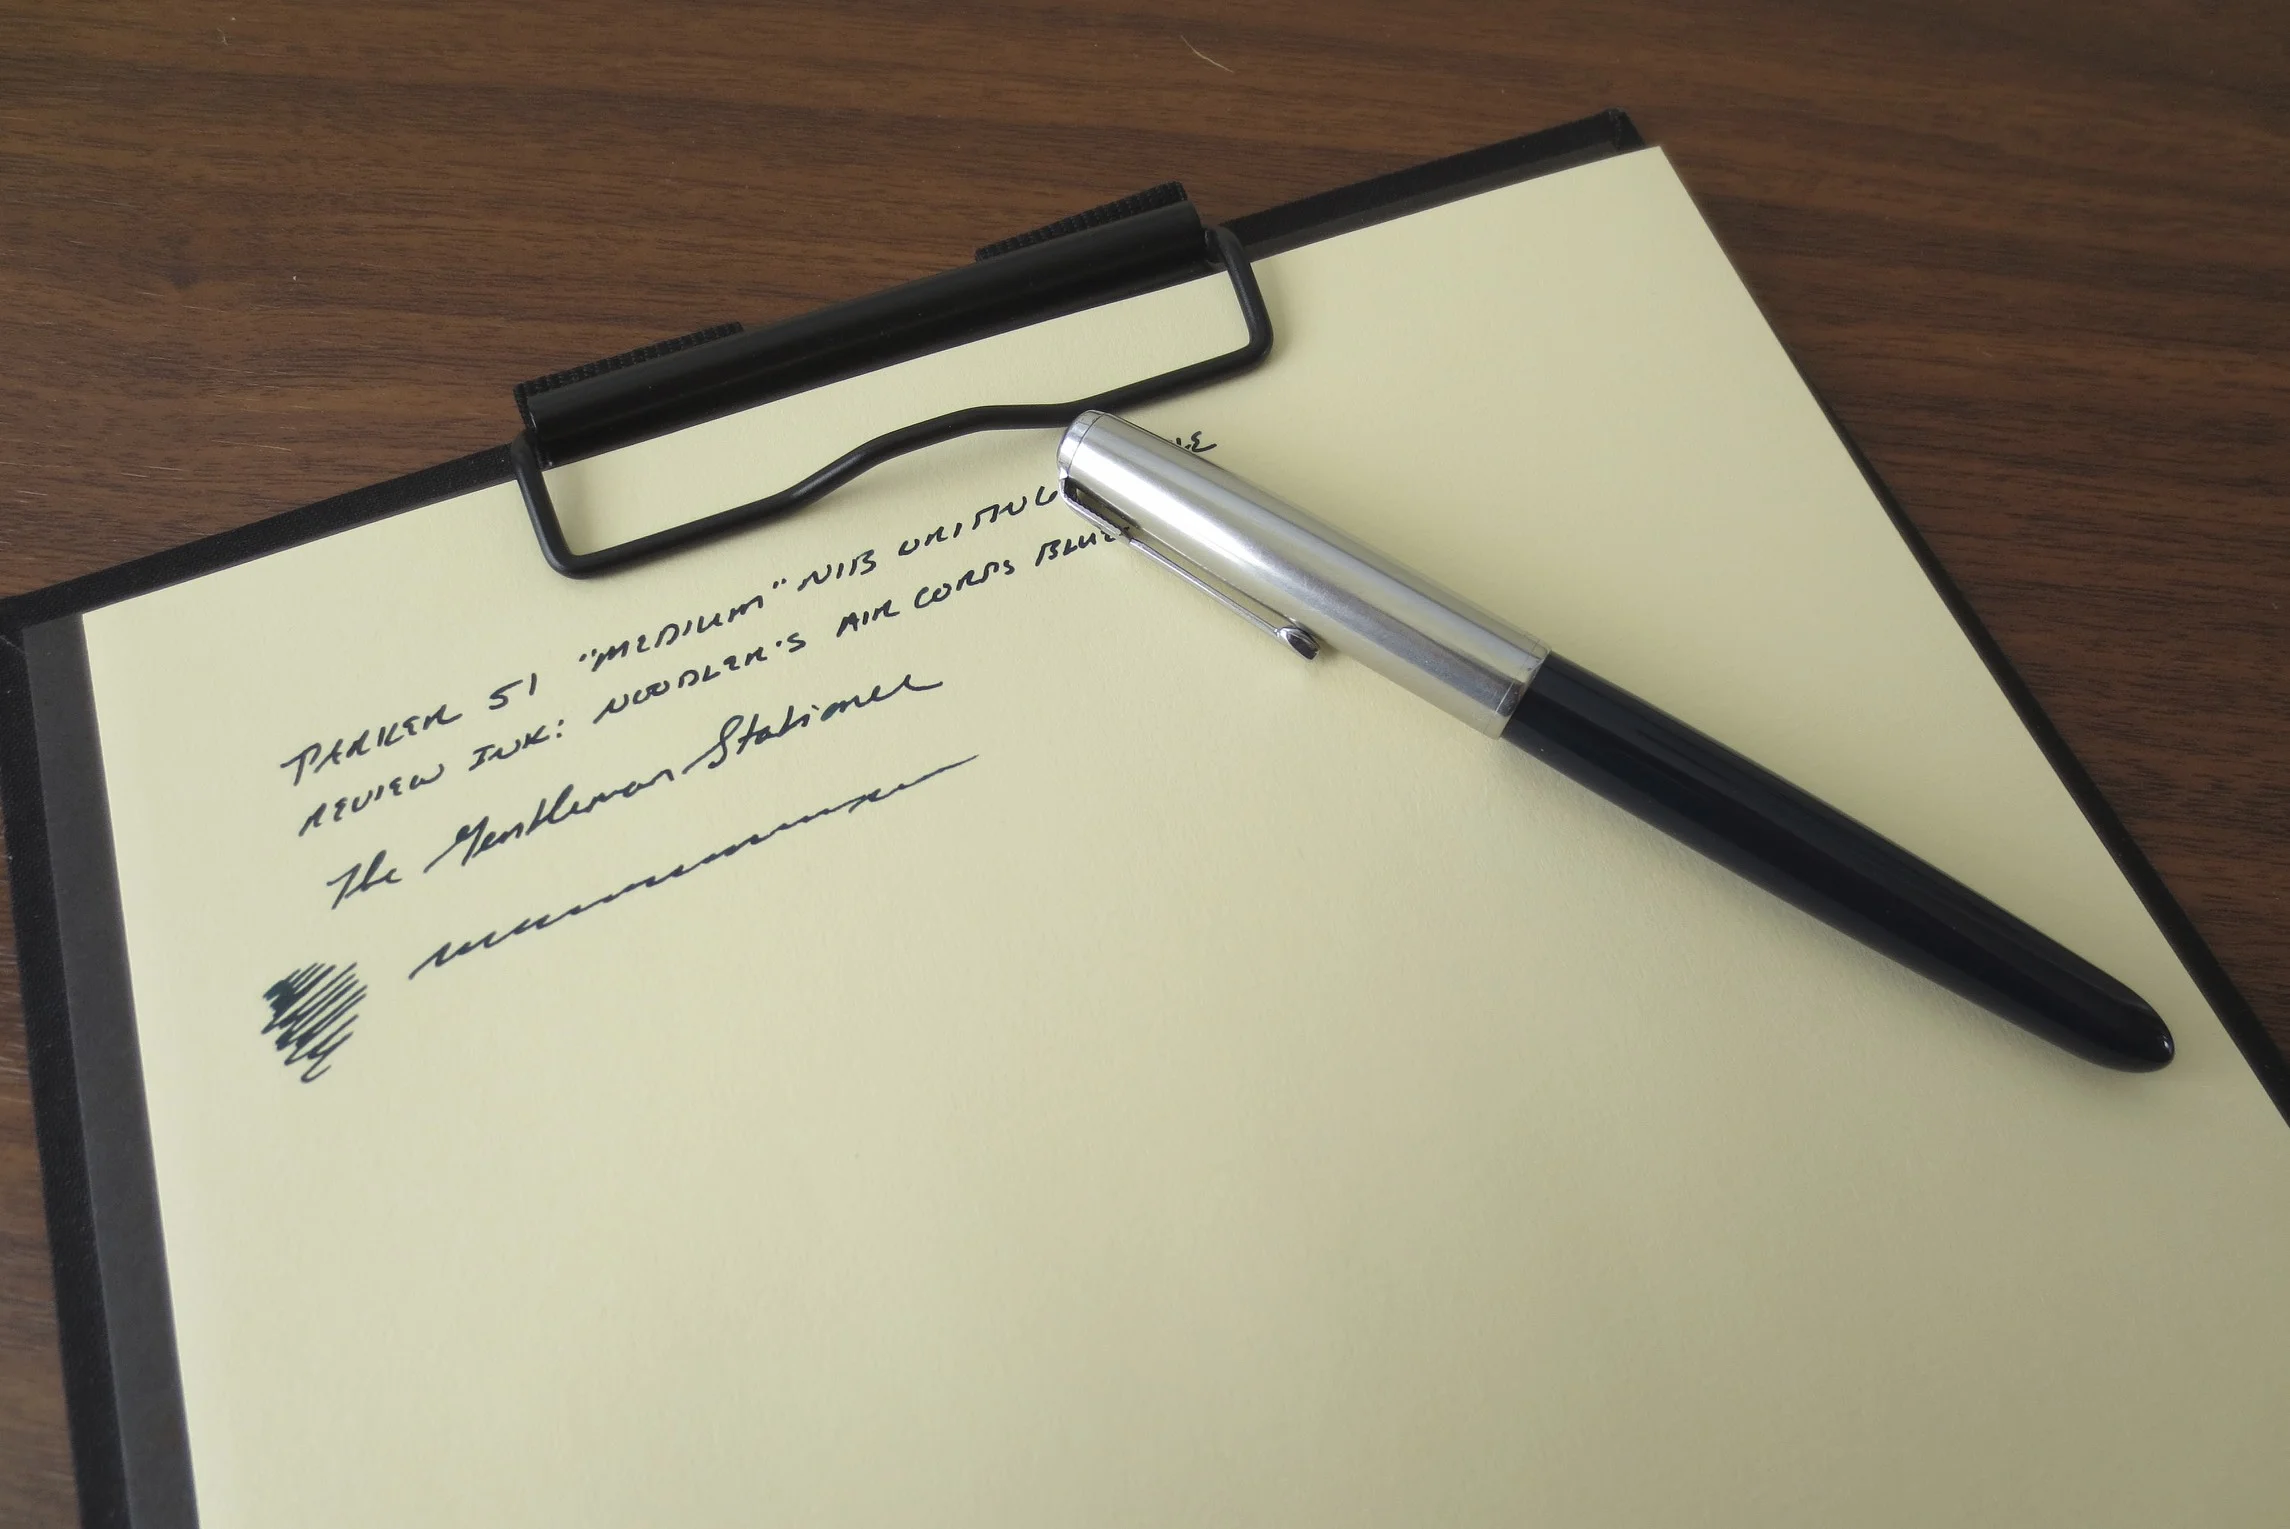 PARKER 51 "MEDIUM" NIB WRITING
REVIEW INK: NOODLER'S AIR CORPS BLUE
The Gentleman Stationer